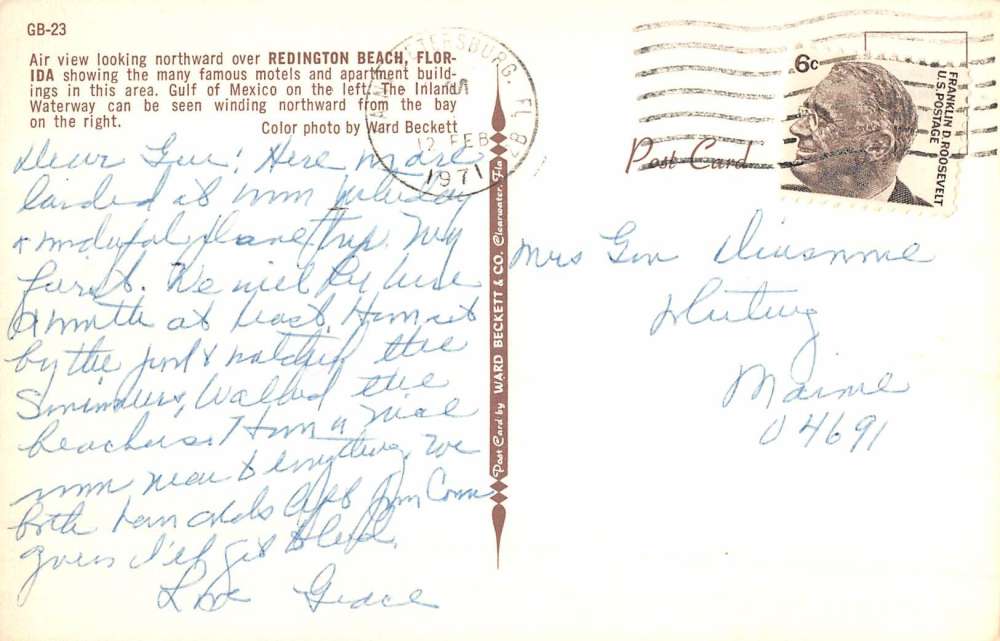 GB-23
Air view looking northward over REDINGTON BEACH, FLOR-
IDA showing the many famous motels and apartment build-
ings in this area. Gulf of Mexico on the left. The Inland
Waterway can be seen winding northward from the bay
on the right.
Color photo by Ward Beckett
PETERSBURG, FL
12 FEB
1971
6c
FRANKLIN D. ROOSEVELT
U.S. POSTAGE
Post Card
Post Card by WARD BECKETT & CO. Clearwater, Fla
Dear Gen! Here we are
landed at
plane trip. My
first. We will be here
a month at least.
by the pool & watched the
swimmers, Walked the
beaches. Have a nice
room near everything. We
both have colds
guess I'll get
Love Grace
Mrs Gen
Whiting
Maine
04691